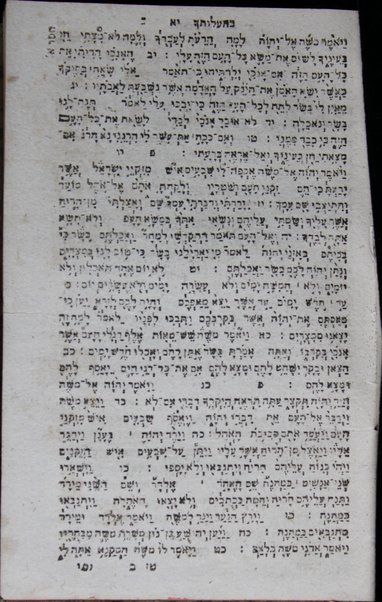 בהעלותך יא
ויאמר משה אל־יהוה למה הרעת לעבדך ולמה לא־מצתי חן
בעיניך לשום את־משא כל־העם הזה עלי: יב האנכי הריתי את
כל־העם הזה אם־אנכי ילדתיהו כי־תאמר אלי שאהו בחיקך
כאשר ישא האמן את־הינק על האדמה אשר נשבעת לאבתיו: יג
מאין לי בשר לתת לכל־העם הזה כי־יבכו עלי לאמר תנה־לנו
בשר ונאכלה: יד לא־אוכל אנכי לבדי לשאת את־כל־העם
הזה כי כבד ממני: טו ואם־ככה את־עשה לי הרגני נא הרג אם־
מצאתי חן בעיניך ואל־אראה ברעתי: פ יו
ויאמר יהוה אל־משה אספה־לי שבעים איש מזקני ישראל אשר
ידעת כי־הם זקני העם ושטריו ולקחת אתם אל־אהל מועד
והתיצבו שם עמך: יז וירדתי ודברתי עמך שם ואצלתי מן־הרוח
אשר עליך ושמתי עליהם ונשאו אתך במשא העם ולא־תשא
אתה לבדך: יח ואל־העם תאמר התקדשו למחר ואכלתם בשר כי
בכיתם באזני יהוה לאמר מי יאכלנו בשר כי־טוב לנו במצרים
ונתן יהוה לכם בשר ואכלתם: יט לא יום אחד תאכלון ולא
יומים ולא חמשה ימים ולא עשרה ימים ולא עשרים יום: כ
עד חדש ימים עד אשר־יצא מאפכם והיה לכם לזרא יען כי־
מאסתם את־יהוה אשר בקרבכם ותבכו לפניו לאמר למה זה
יצאנו ממצרים: כא ויאמר משה שש־מאות אלף רגלי העם אשר
אנכי בקרבו ואתה אמרת בשר אתן להם ואכלו חדש ימים: כב
הצאן ובקר ישחט להם ומצא להם אם את־כל־דגי הים יאסף להם
ומצא להם: פ כג ויאמר יהוה אל־משה
היד יהוה תקצר עתה תראה היקרך דברי אם־לא: כד ויצא משה
וידבר אל־העם את דברי יהוה ויאסף שבעים איש מזקני
העם ויעמד אתם סביבת האהל: כה וירד יהוה בענן וידבר
אליו ויאצל מן־הרוח אשר עליו ויתן על־שבעים איש הזקנים
ויהי כנוח עליהם הרוח ויתנבאו ולא יספו: כו וישארו
שני־אנשים במחנה שם האחד אלדד ושם השני מידד
ותנח עליהם הרוח והמה בכתבים ולא יצאו האהלה ויתנבאו
במחנה: כז וירץ הנער ויגד למשה ויאמר אלדד ומידד
מתנבאים במחנה: כח ויען יהושע בן־נון משרת משה מבחריו
ויאמר אדני משה כלאם: כט ויאמר לו משה המקנא אתה לי
טו ב ומי